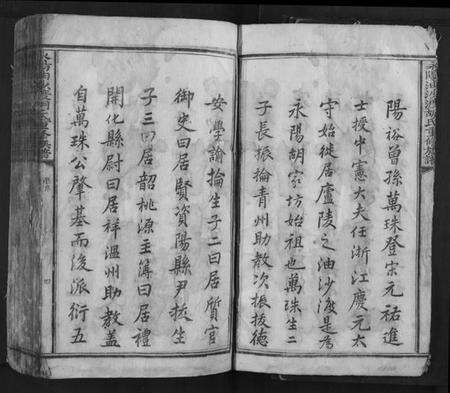 陽裕曾孫萬珠登宋元祐進
士授中憲大夫任浙江慶元太
守始徙居廬陵之油沙渡是為
永陽胡家坊始祖也萬珠生二
子長振掄青州助教次振拔德
安學諭掄生子二曰居質官
御史曰居賢資陽縣尹拔生
子三曰居韶桃源主簿曰居禮
開化縣尉曰居祥溫州助教蓋
自萬珠公肇基而後派衍五